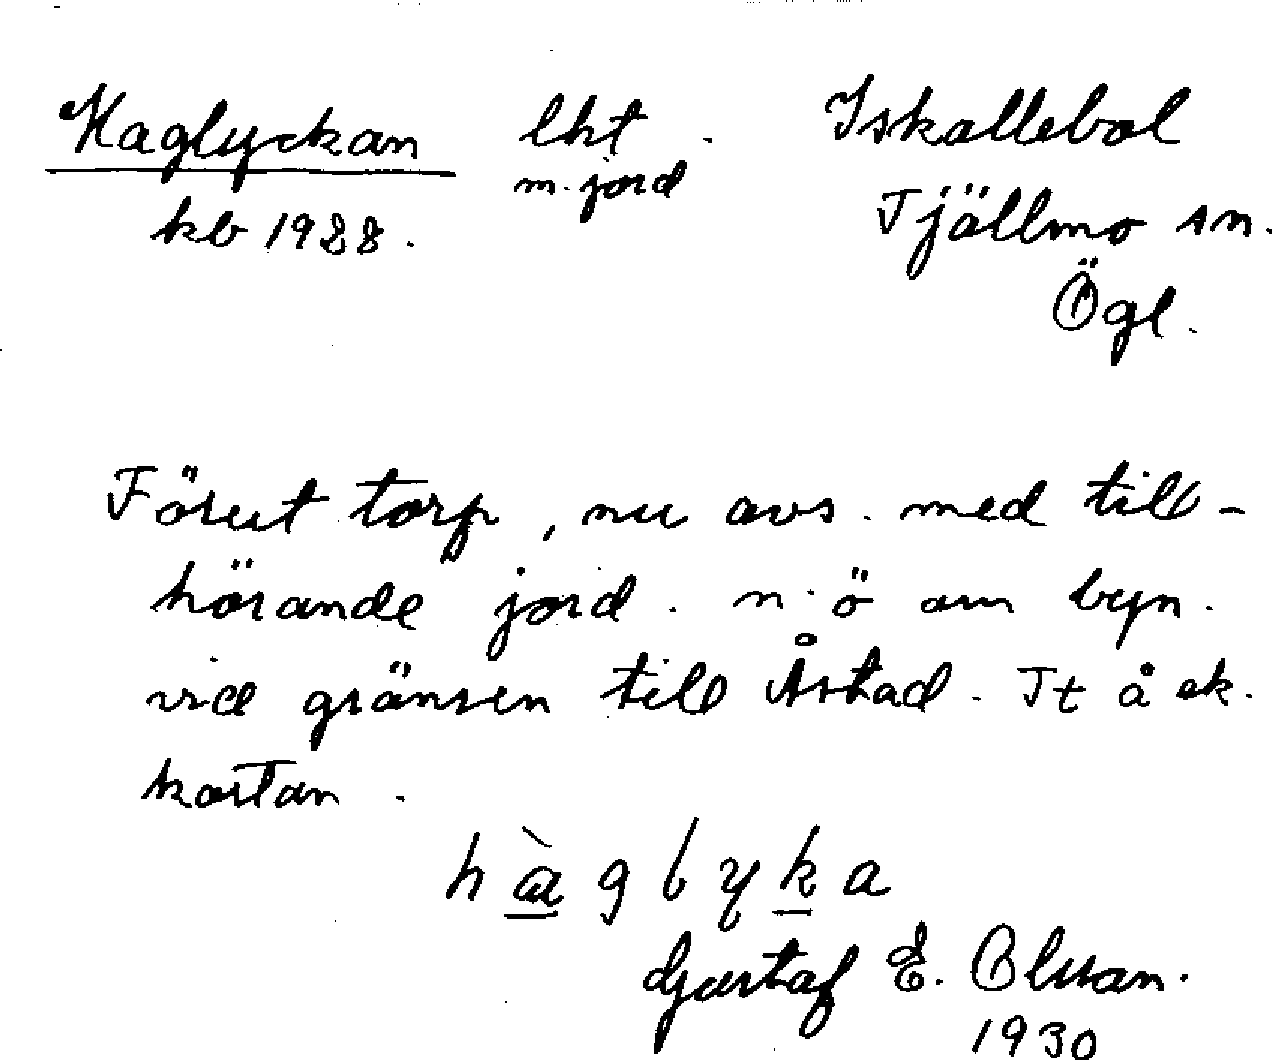 Haglyckan lht . Iskallebol
m. jord
kb 1928. Tjällmo sn.
Ögl.
Förut torp, nu avs. med till-
hörande jord. n.ö om byn.
vid gränsen till Åstad. Tt å ek.
kartan.
hàglyka
Gustaf E. Olsson.
1930